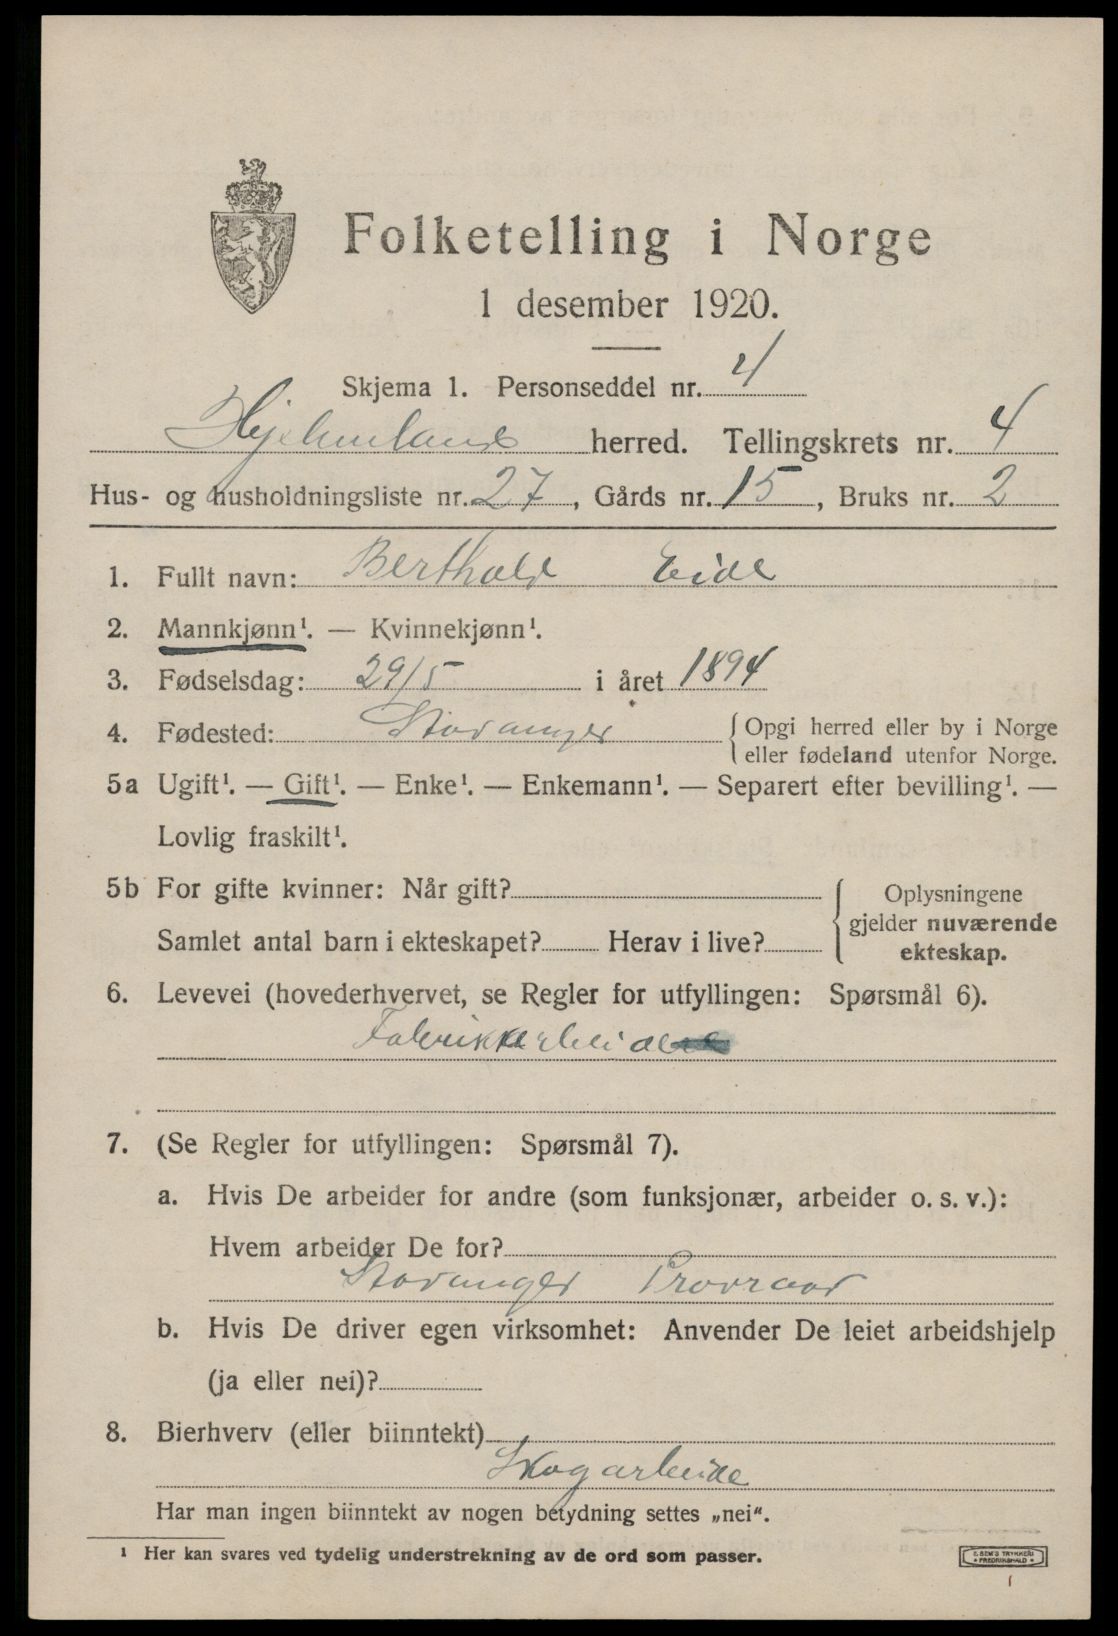 Folketelling i Norge
1 desember 1920.
Skjema 1. Personseddel nr. 4
Hjelmeland herred. Tellingskrets nr. 4
Hus- og husholdningsliste nr. 27, Gårds nr. 15, Bruks nr. 2
1. Fullt navn: Berthold Eide
2. Mannkjønn¹. — Kvinnekjønn¹.
3. Fødselsdag: 29/5 i året 1894
4. Fødested: Stavanger { Opgi herred eller by i Norge
eller fødeland utenfor Norge.
5a Ugift¹. — Gift¹. — Enke¹. — Enkemann¹. — Separert efter bevilling¹. —
Lovlig fraskilt¹.
5b For gifte kvinner: Når gift?
Samlet antal barn i ekteskapet? Herav i live?
Oplysningene
gjelder nuværende
ekteskap.
6. Levevei (hovederhvervet, se Regler for utfyllingen: Spørsmål 6).
Fabrikkarbeide
7. (Se Regler for utfyllingen: Spørsmål 7).
a. Hvis De arbeider for andre (som funksjonær, arbeider o. s. v.):
Hvem arbeider De for?
Stavanger
b. Hvis De driver egen virksomhet: Anvender De leiet arbeidshjelp
(ja eller nei)?
8. Bierhverv (eller biinntekt)
Skogarbeide
Har man ingen biinntekt av nogen betydning settes „nei“.
¹ Her kan svares ved tydelig understrekning av de ord som passer.
E. SEM'S TRYKKERI
FREDRIKSHALD